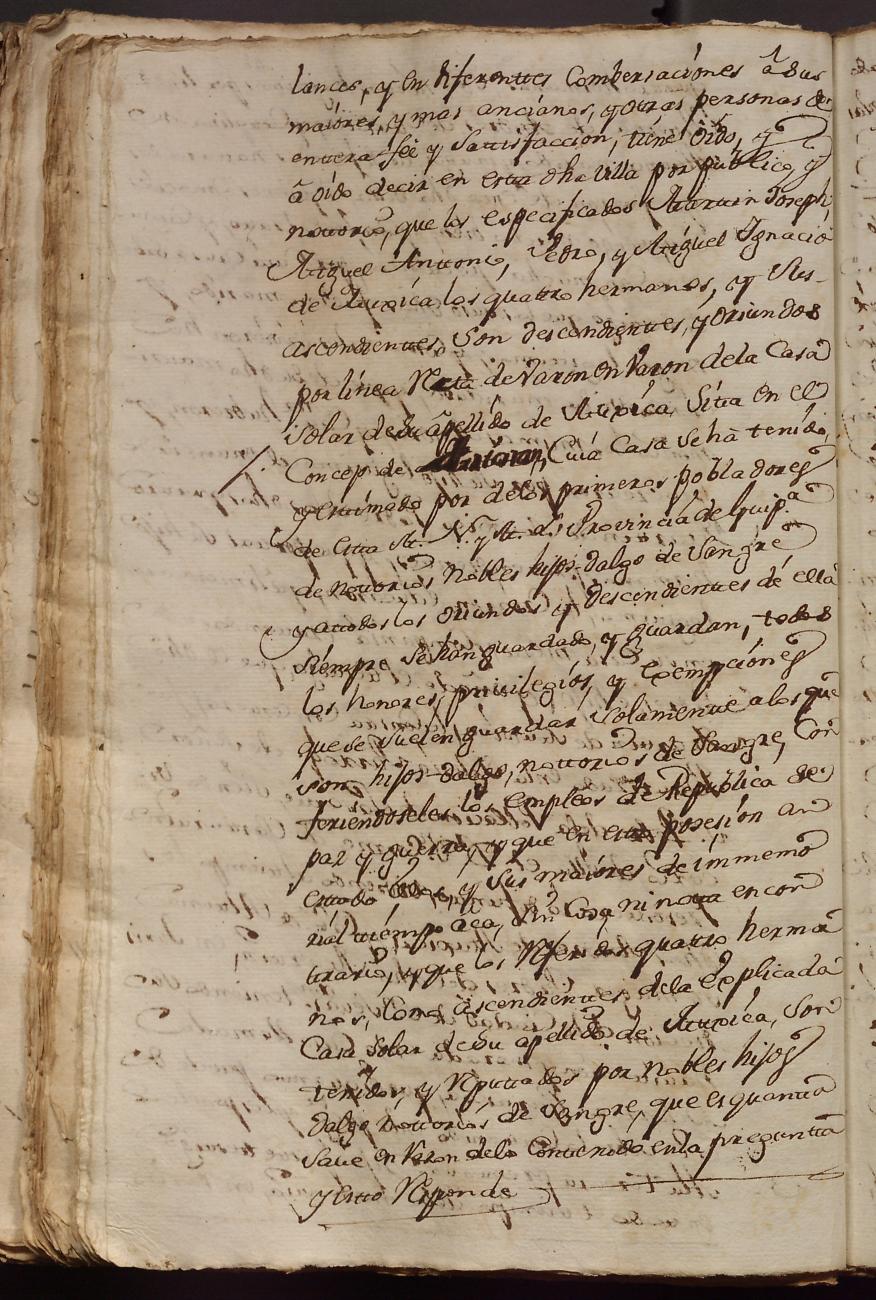 lances, y en diferentes Combersaciónes â sus
maióres, y mas anciános, y otras personas de
entera feé y Sattisfaccion, tiene Oido, y
â oido decir en esta dha villa por público, y
nottorio, que los especificados Martin Joseph,
Miguel Anttonio, Pedro, y Miguel Ignacio
de los quattro hermanos, y Sus
ascendientes, Son descendientes, y Oriundos
por línea Recta de Varon en Varon dela Casa
Solar de Su apellido de Sita en el
Concep. de Cuia Casa se hà tenido,
y esttimado por delos primeros pobladores
de Esta M. N. y M. L. Provincia de Guip.a
de nottorios Nobles hijos-dalgo de Sangre
y a ttodos los Oriundos y descendientes de ella
Siempre se hàn guardado, y guardan, todos
los honores, privilegios, y Exempciónes
que se suelen guardar Solamente a los que
son hijos-dalgo, nottorios de Sangre, Con
feriendoseles los empleos de Republica de
paz y guerra, y que en esta posesión an
esttado ellos, y Sus maióres de immemo
riàl tiémpo àca, sin Cosa, ni nota en con
trario, y que los Referidos quattro herma
nos, Como ascendiéntes dela Explicada
Casa Solar de Su apéllido de Son
tenidos, y Reputtados por Nobles hijos
dalgo nottoriós de Sangre, que es quantto
Save en Razon delo Conttenido en la pregunta
y Esto Responde